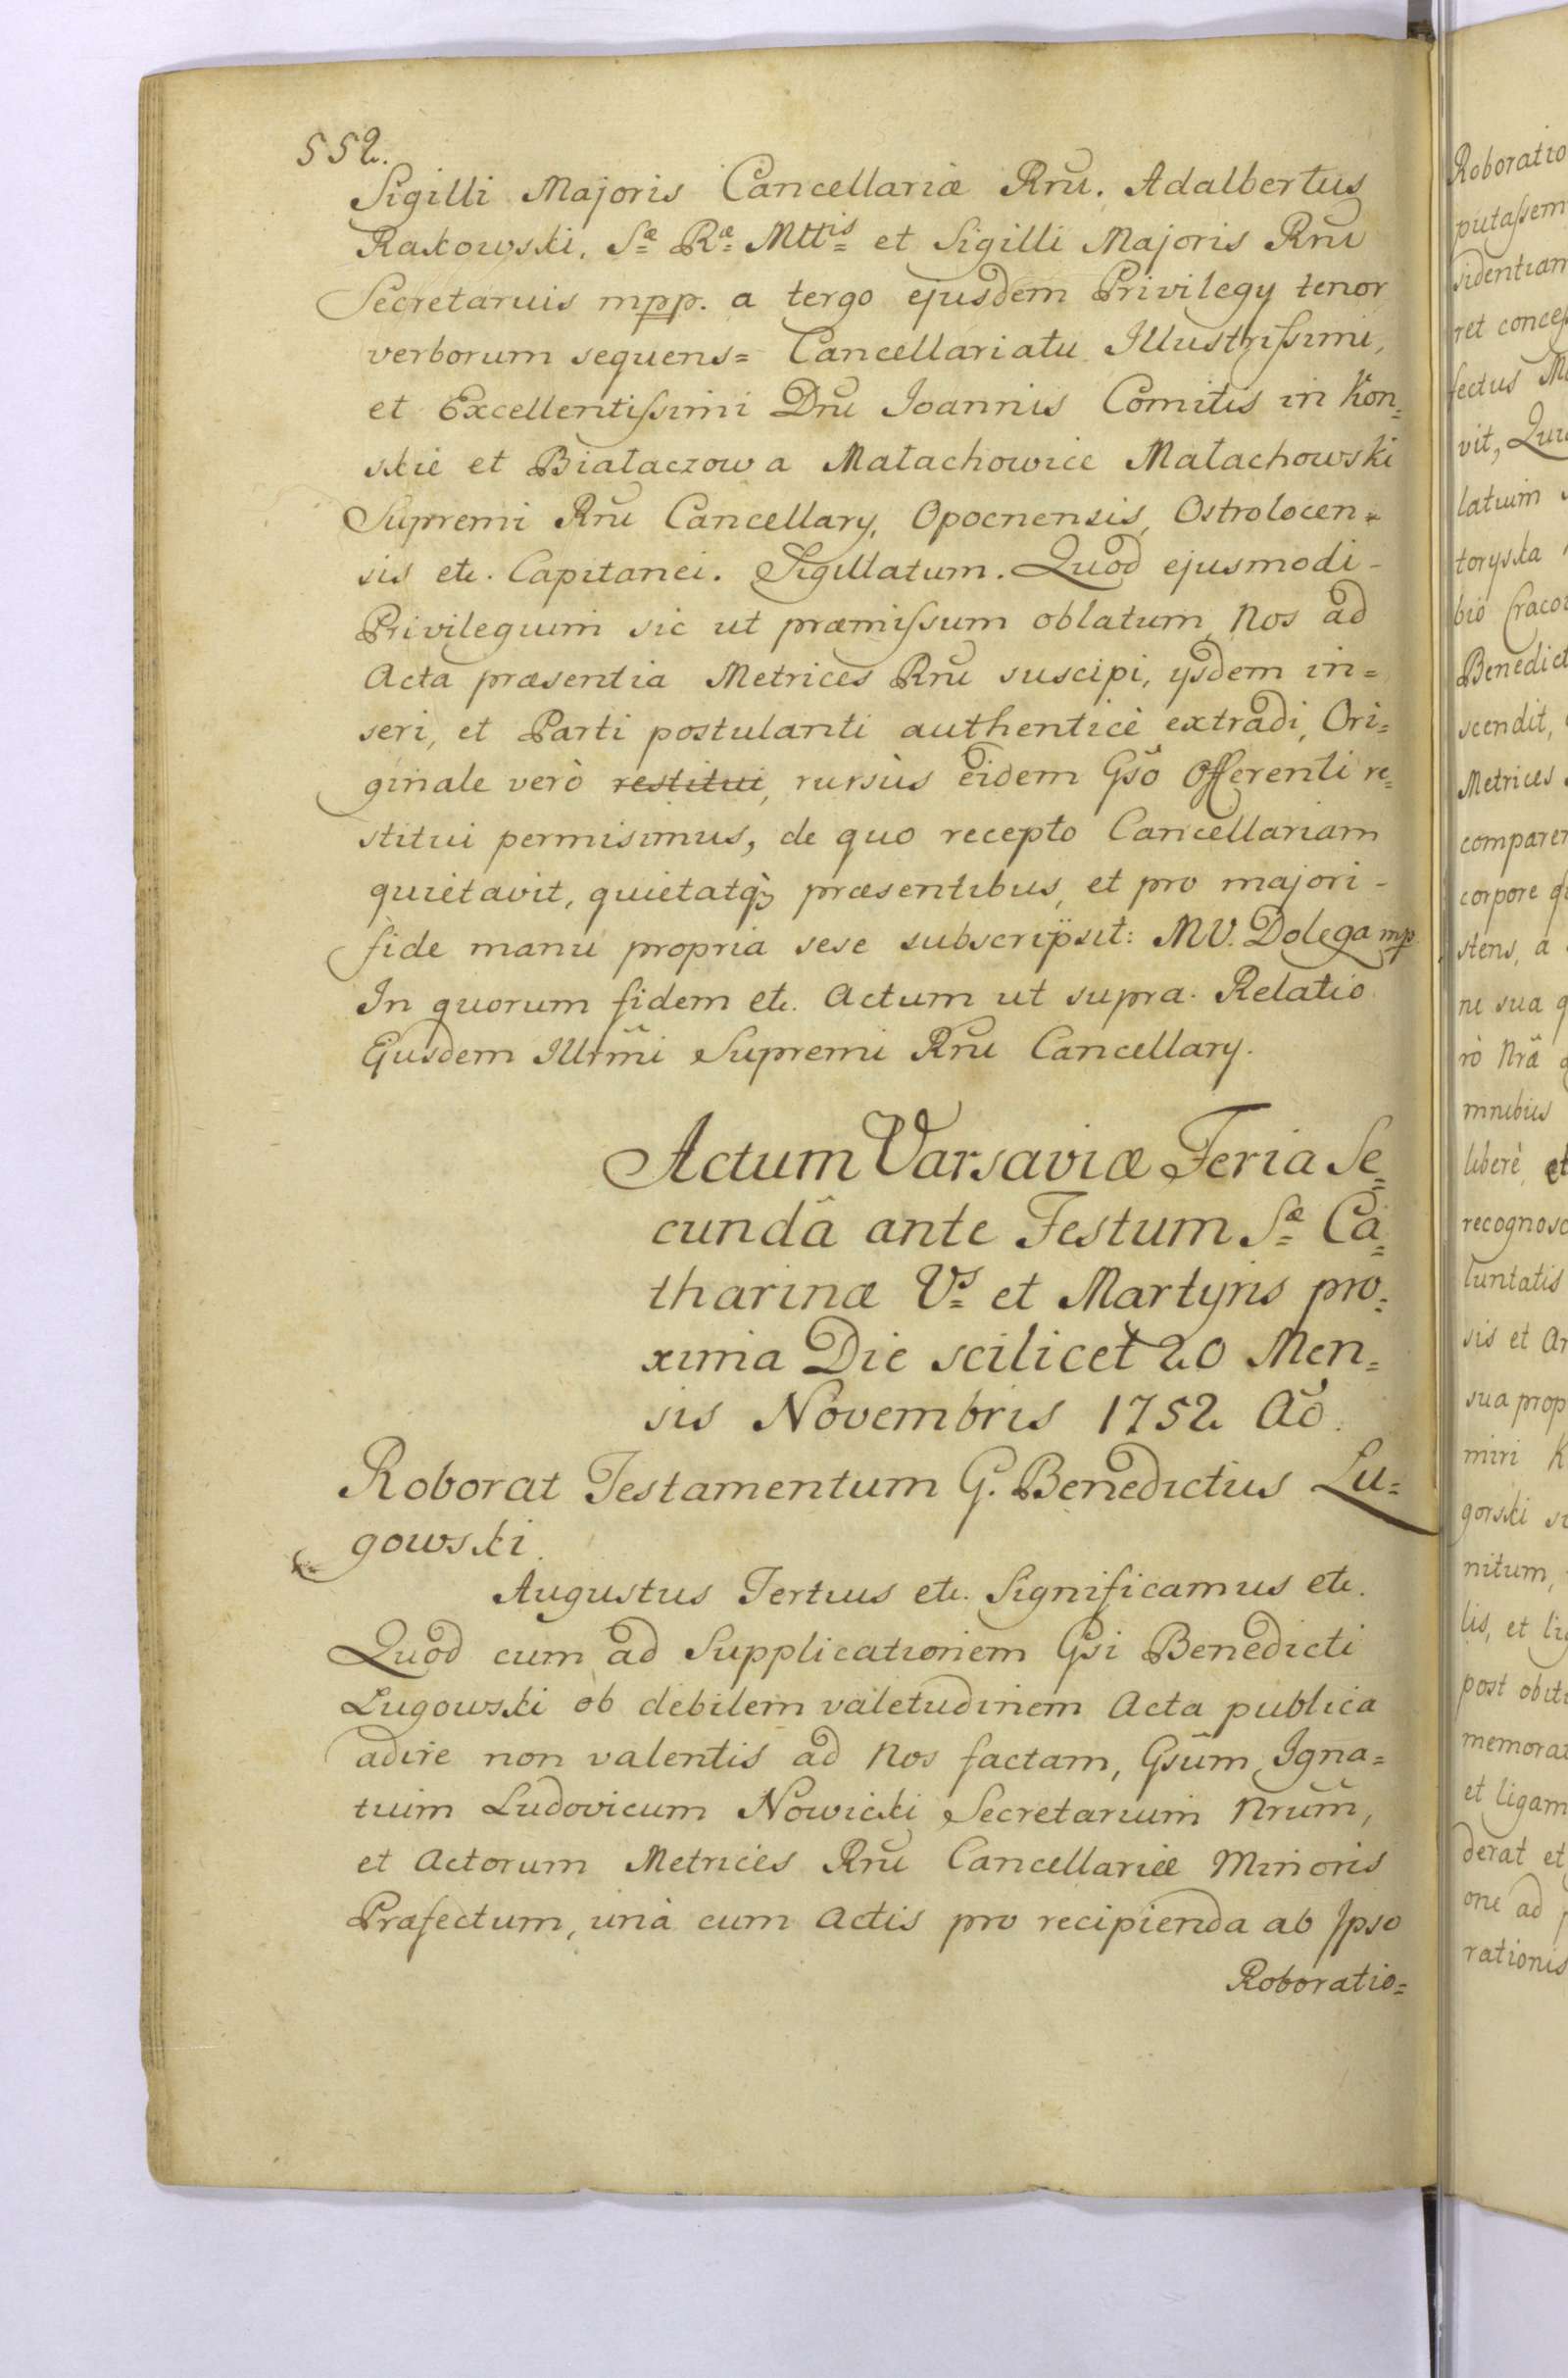 552.
Sigilli Majoris Cancellariæ Rnũ. Adalbertus
Rakowski, Sæ Ræ Mttis et Sigilli Majoris Rnũ
Secretarius mpp. a tergo ejusdem Privilegy tenor
verborum sequens= Cancellariatu Illustriſsimi,
et Excellentiſsimi Dnĩ Joannis Comitis in Kon=
skie et Białaczow a Małachowice Małachowski
Supremi Rnũ Cancellary, Opocnensis, Ostrolocen=
sis etc. Capitanei. Sigillatum. Quod ejusmodi-
Privilegium sic ut præmiſsum oblatum, Nos ad
Acta præsentia Metrices Rnũ suscipi, ysdem in=
seri, et Parti postulanti authenticè extradi, Ori=
ginale verò restitui, rursùs eidem Gsõ Offerenti re=
stitui permisimus, de quo recepto Cancellariam
quietavit, quietatq́ꝫ præsentibus, et pro majori-
fide manu propria sese subscripsit: MV. Dolega mp
In quorum fidem etc. Actum ut supra. Relatio
Ejusdem Illrm̃i Supremi Rnũ Cancellary.
Actum Varsaviæ Feria Se=
cundâ ante Festum Sæ Ca=
tharinæ Vs et Martyris pro=
xima Die scilicet 20 Men=
sis Novembris 1752 Aõ.
Roborat Testamentum G. Benedictus Lu=
gowski.
Augustus Tertius etc. Significamus etc.
Quod cum ad Supplicationem Gsi Benedicti
Lugowski ob debilem valetudinem Acta publica
adire non valentis ad Nos factam, Gsũm Igna=
tium Ludovicum Nowicki Secretarium Nrũm,
et Actorum Metrices Rnũ Cancellariæ Minoris
Præfectum, unà cum Actis pro recipienda ab Ipso
Roboratio=
Roboratio
putaſsem
sidentiam
ret concep
fectus
vit,
latuim
toryska
bio Craco
Benedict
scendit,
Metrices
comparen
corpore
stens, a
ne sua
rò Nrã
mnibus
liberè, et
recognosc
luntatis
sis et
sua prop
miri K
gorski
nitum,
lis, et
post obit
memorat
et ligam
derat et
one ad
rationis